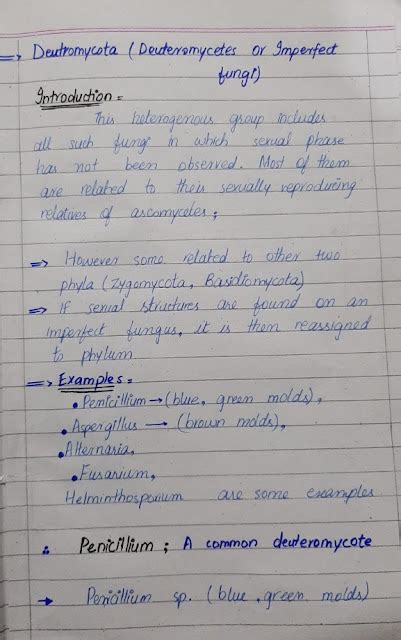 => Deutromycota (Deuteromycetes or Imperfect
fungi)
Introduction =
This heterogenous group includes
all such fungi in which sexual phase
has not been observed. Most of them
are related to their sexually reproducing
relatives of ascomycetes;
=> However some related to other two
phyla (Zygomycota, Basidiomycota)
=> If sexual structures are found on an
imperfect fungus, it is them reassigned
to phylum
=> Examples =
• Penicillium → (blue, green molds),
• Aspergillus → (brown molds),
• Alternaria,
• Fusarium,
Helminthosporium are some examples
∴ Penicillium ; A common deuteromycote
→ Penicillium sp. (blue, green molds)